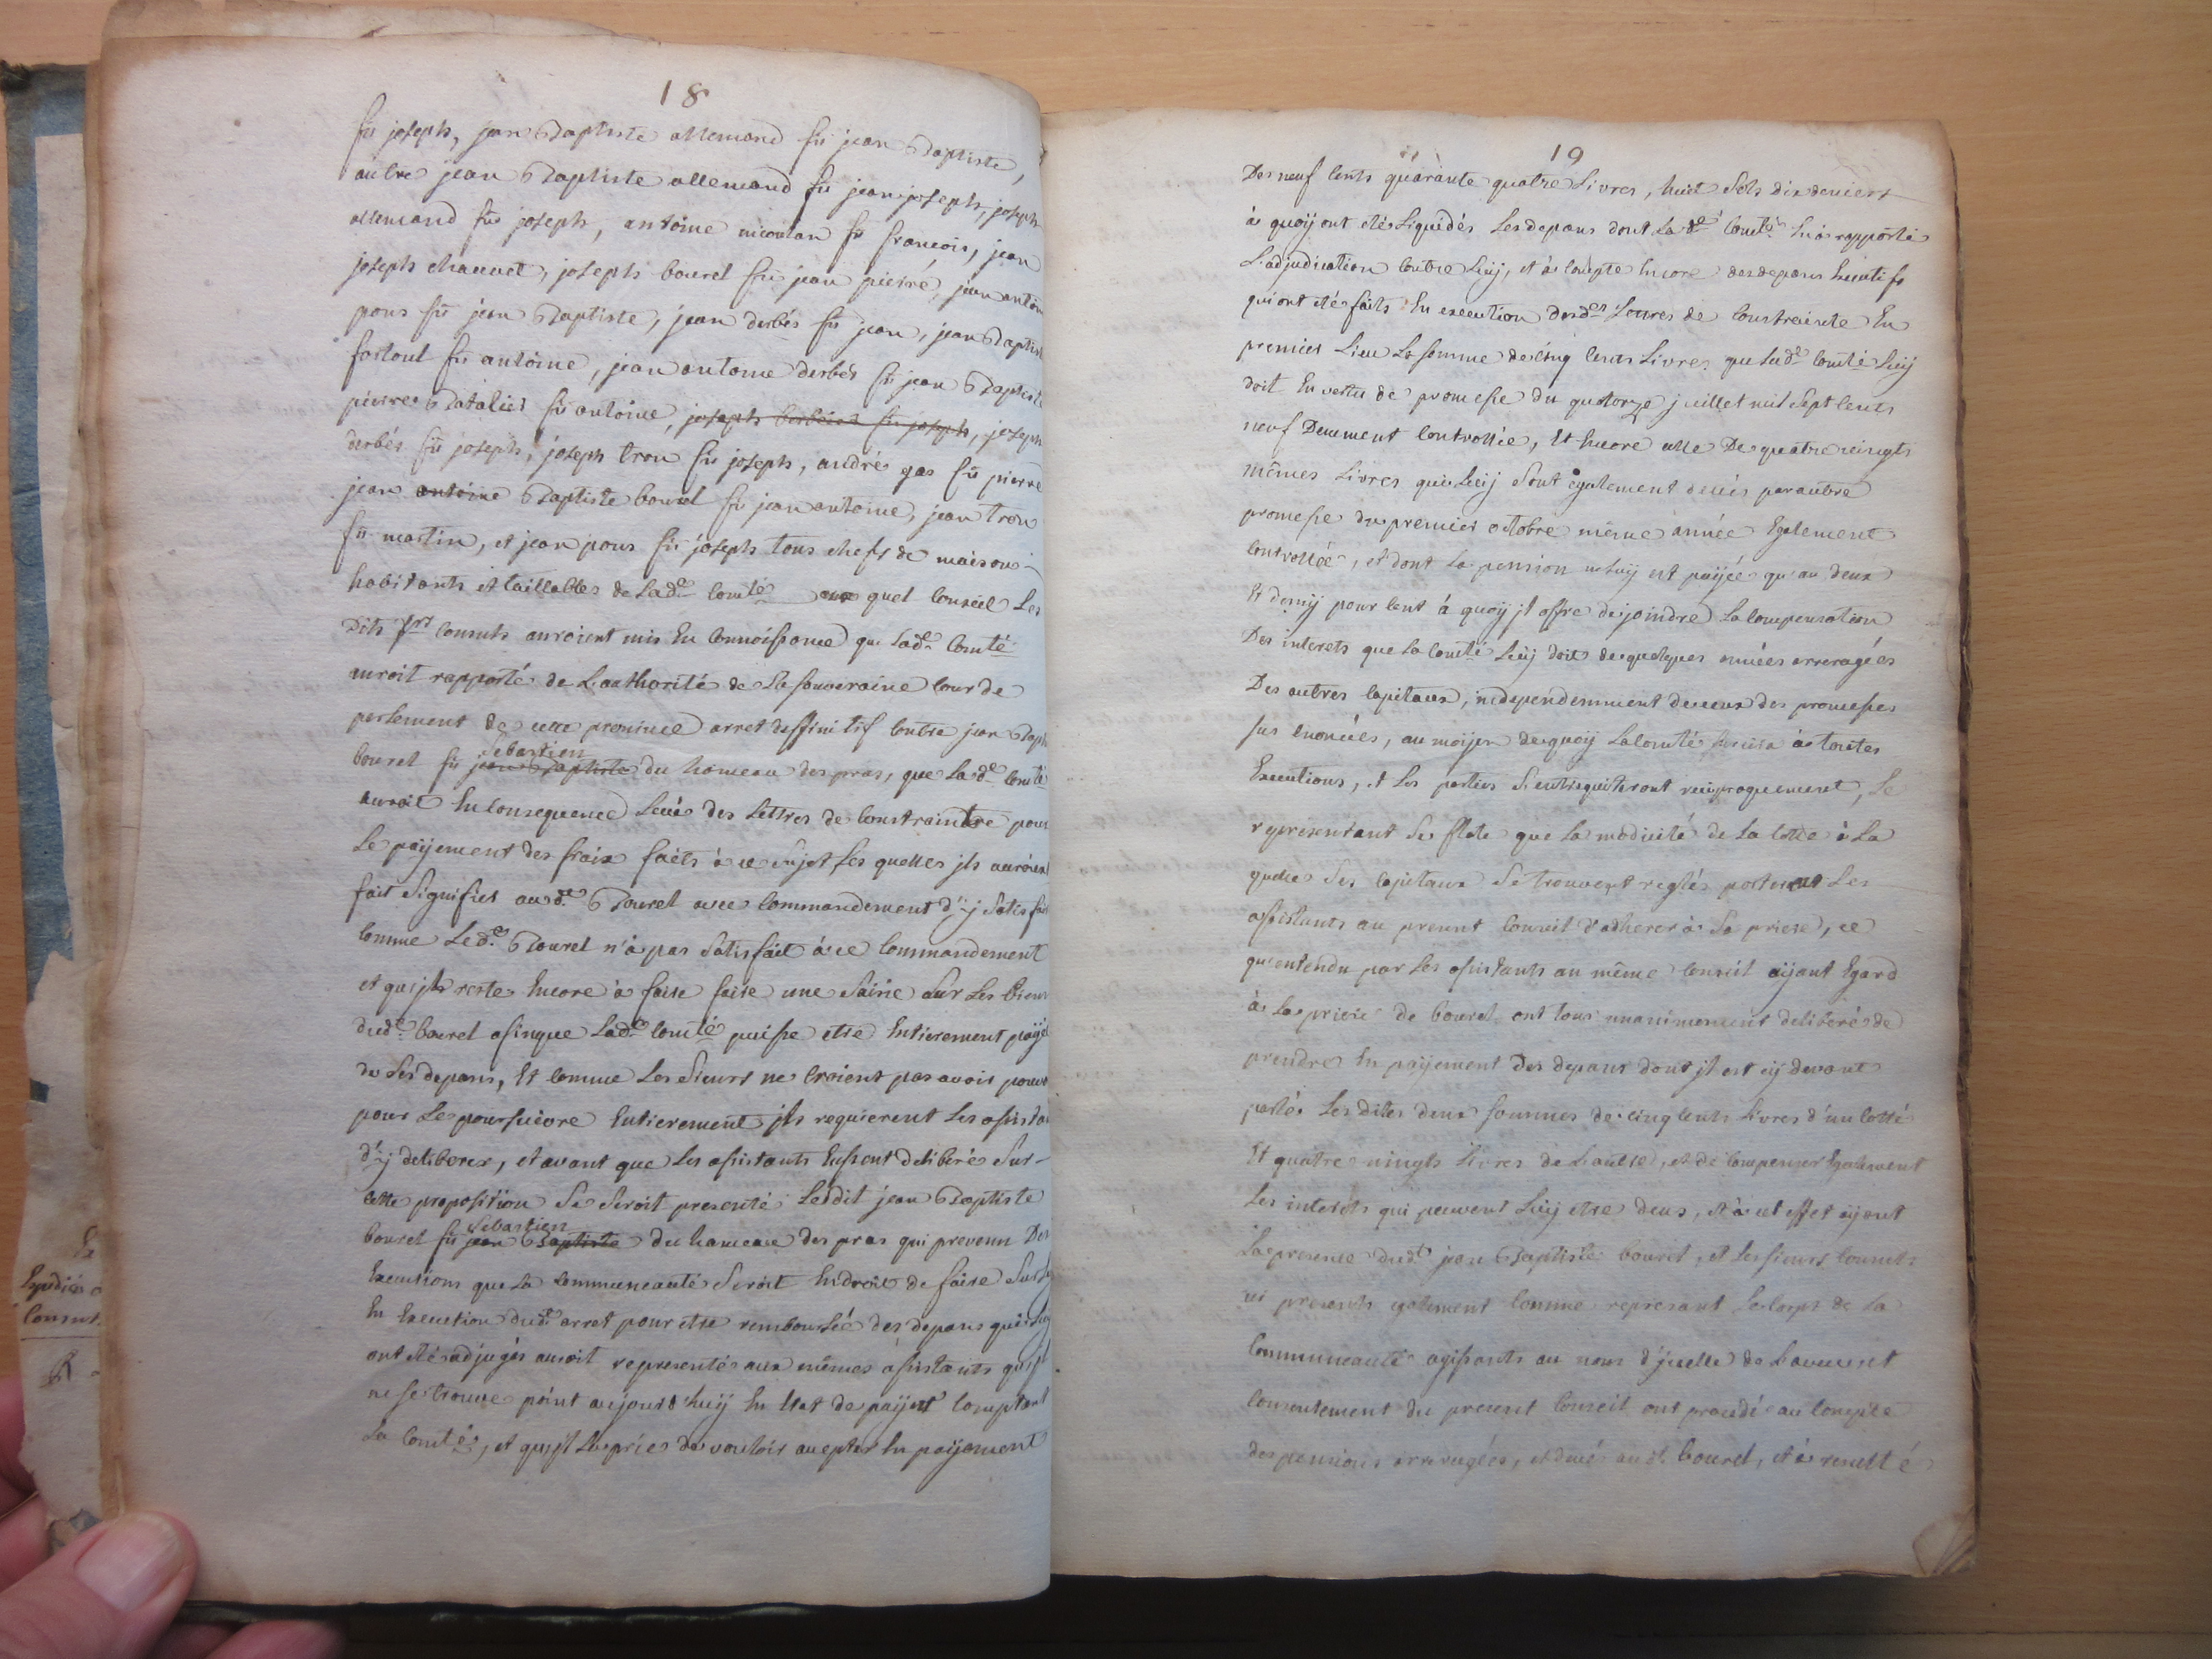 18
fû joseph, jean Baptiste allemand fû jean Baptiste,
autre jean Baptiste allemand fû jean joseph, joseph
allemand fû joseph, antoine nicoulan fû francois, jean
joseph chauvet, joseph bourel fû jean pierre, jean antoin
pons fû jean Baptiste, jean derbés fû jean, jean Baptist
fortoul fû antoine, jean antoine derbés fû jean Baptiste
pierre Batalier fû antoine, joseph fû joseph, joseph
derbés fû joseph, joseph tron fû joseph, andré gas fû pierre
jean antoine Baptiste bourel fû jean antoine, jean tron
fû martin, et jean pons fû joseph tous chefs de maison
habitants et taillables de lade comté quel Conseil Les
Dits srs consuls auroient mis En Connoissance que Lade Comté
auroit rapporté de L'authorité de La souveraine Cour de
parlement de cette province arret deffinitif Contre jean Bapt
bourel fû jean Baptiste Sebastien du hameau des pras, que Lade Comté
auroit En Consequence Levé des Lettres de Constrainte pour
Le payement des fraix faits à ce sujet Les quelles jls auroient
fait signifier aud. Bourel avec Commandement d'y satisfair
Comme Led. Bourel n'à pas satisfait à ce Commandement
et qu'jls reste Encore à faire faire une saisie sur Les biens
dud. bourel afin que Lade Comté puisse etre Entierement payé
de ses depans, Et Comme Les sieurs ne croient pas avoir pouv
pour Le poursuivre Entierement jls requierent Les assista
d'y deliberer, et avant que Les assistants Eussent deliberé sur
cette proposition se seroit presenté Ledit jean Baptiste
bourel fû jean Baptiste Sebastien du hameau des pras qui prevenu Des
Executions que La Communeauté seroit En droit de faire sur luy
En Execution dud. arret pour etre remboursée des depans qui luy
ont eté adjugés auroit representé aux mêmes assistants qu'jl
ne se trouve point aujourd'huy En Etat de payer Comptant
La Comté, et qu'jl La prie de vouloir accepter En payement
19
Des neuf Cents quarante quatre Livres, huit sols dix deniers
à quoy ont etés Liquidés Les depans dont La de Comté En à rapporté
L'adjudication Contre Luy, et à Compte Encore des depans
qui ont eté faits En execution desd. Lettres de Constrainte En
premier Lieu La somme de Cinq Cents Livres que Lade Comté Luy
doit En vertu de promesse du quatorze juillet mil sept Cents
neuf Deuement Controllée, Et Encore celle De quatre vingts
mêmes Livres qui Luy sont egalement deües par autre
promesse du premier octobre même année Egalement
Controllée, et dont La pension ne Luy est payée qu'au deux
Et demy pour Cent à quoy jl offre de joindre La Compensation
Des interets que La Comté Luy doit de quelques années arreragées
Des autres Capitaux, independemment de ceux des promesses
sus enoncées, au moyen de quoy La Comté à toutes
Executions, et Les parties s'entrequiteront reciproquement, Le
representant se flate que La modicité de La Cotte à La
quelle ses Capitaux se trouvent reglés porteront Les
assistants au present Conseil d'adherer à sa priere, ce
qu'entendu par Les assistants au même Conseil ayant Egard
à La priere de bourel ont tous unanimement deliberé de
prendre En payement Des depans dont jl est cy devant
parlé Les dites deux sommes de cinq Cents Livres d'un Cotté
Et quatre vingts Livres de L'autre, et de Compenser Egalement
Les interets qui peuvent Luy etre deus, et à cet effet ayant
La presence dud. jean Baptiste bourel, et Les sieurs Consuls
ici presents egalement Comme represant Le Corps de La
Communeauté agissants au nom d'jcelle de L'aveu et
Consentement du present Conseil ont procedé au Compte
des pensions arreragées, et dues aud. bourel, et à resulté